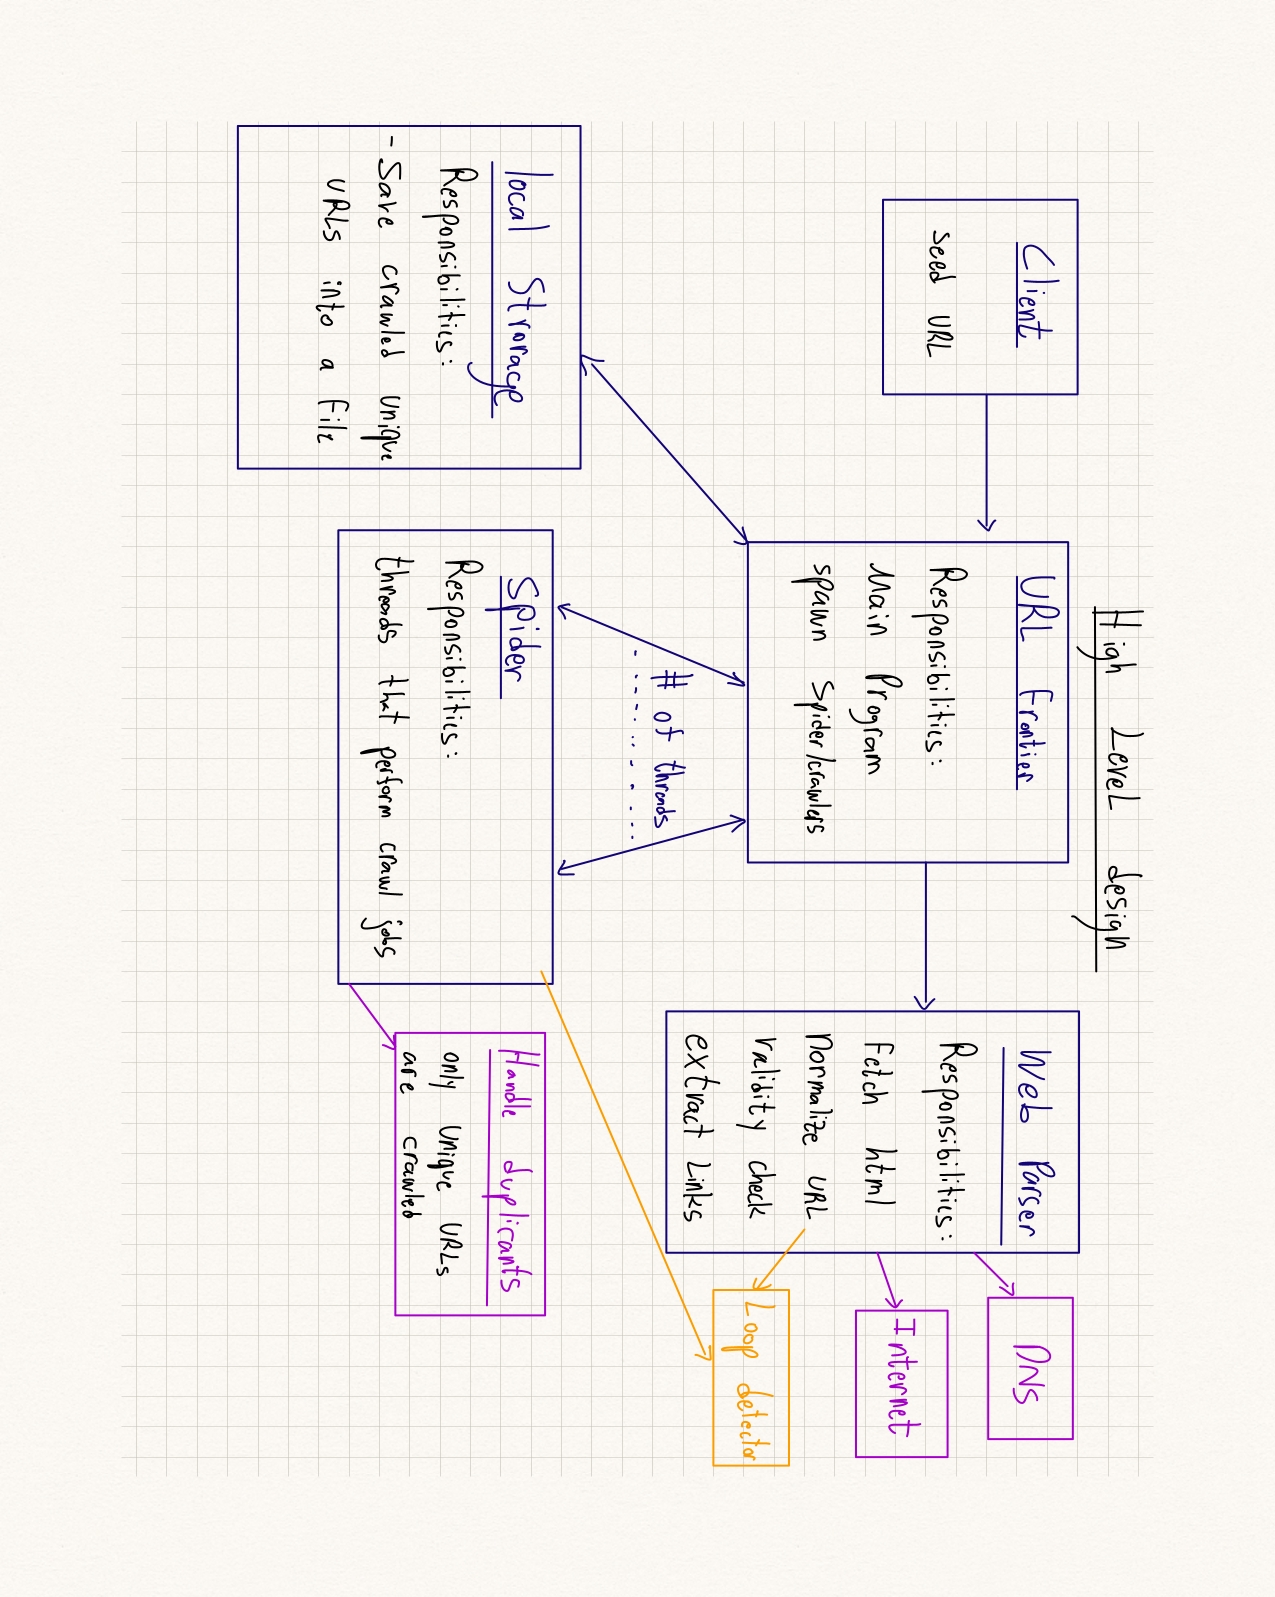 High Level design
Client
Seed URL
URL Frontier
Responsibilities:
Main Program
spawn Spider/crawlers
Web Parser
Responsibilities:
Fetch html
normalize URL
validity check
extract Links
DNS
Internet
Loop detector
# of threads
local Strorage
Responsibilities:
- Save crawled unique
URLs into a File
Spider
Responsibilities:
threads that perform crawl jobs
Handle duplicants
only Unique URLs
are crawled